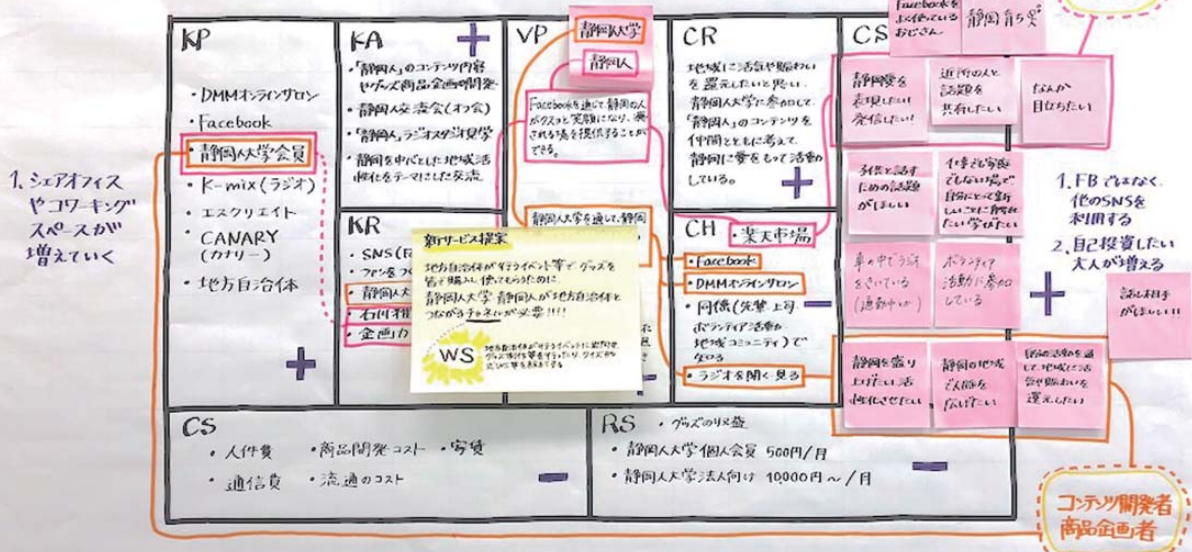 1. シェアオフィス
やコワーキング
スペースが
増えていく
KP
・DMMオンラインサロン
・Facebook
・静岡人大学会員
・K-mix(ラジオ)
・エスクリエイト
・CANARY
(カナリー)
・地方自治体
+
KA
+
・「静岡人」のコンテンツ内容
やグッズ商品企画の開発
・静岡人交流会(オフ会)
・「静岡人」ラジオスタジオ見学
・静岡を中心とした地域活
性化をテーマにした交流
KR
・SNS(F
・静岡人大
・企画力
VP
静岡人大学
静岡人
Facebookを通じて、静岡の人
がクスッと笑顔になり、癒
される場を提供することが
できる。
静岡人大学を通して、静岡
新サービス提案
皆で購入し使ってもらうために
静岡人大学 静岡人が地方自治体と
つながるチャネルが必要!!!!
WS
CR
地域に活気や賑わい
を還元したいと思い、
静岡人大学に参加して、
「静岡人」のコンテンツを
仲間とともに考えて、
静岡に愛をもって活動
している。
+
CH
・楽天市場
・Facebook
・DMMオンラインサロン
・同僚(先輩・上司・
ボランティア活動や
地域コミュニティ)で
知る
・ラジオを聞く・見る
CS
Facebookを
よく使っている
おじさん
静岡育ち
静岡愛を
表現したい!
発信したい!
近所の人と
話題を
共有したい
なんか
目立ちたい
子供と話す
ための話題
がほしい
仕事でも家庭
でもない場で
車の中でラジオ
をきいている
(通勤中とか)
ボランティア
活動に参加
している
静岡を盛り
上げたい、活
性化させたい
静岡の地域
で人脈を
広げたい
自分の活動を通
して、地域に活
気や賑わいを
還元したい
話し相手
がほしい!!
1. FBではなく、
他のSNSを
利用する
2. 自己投資したい
大人が増える
+
CS
・人件費 ・商品開発コスト ・家賃
・通信費 ・流通のコスト
RS ・グッズの収益
・静岡人大学個人会員 500円/月
・静岡人大学法人向け 10,000円〜/月
コンテンツ開発者
商品企画者